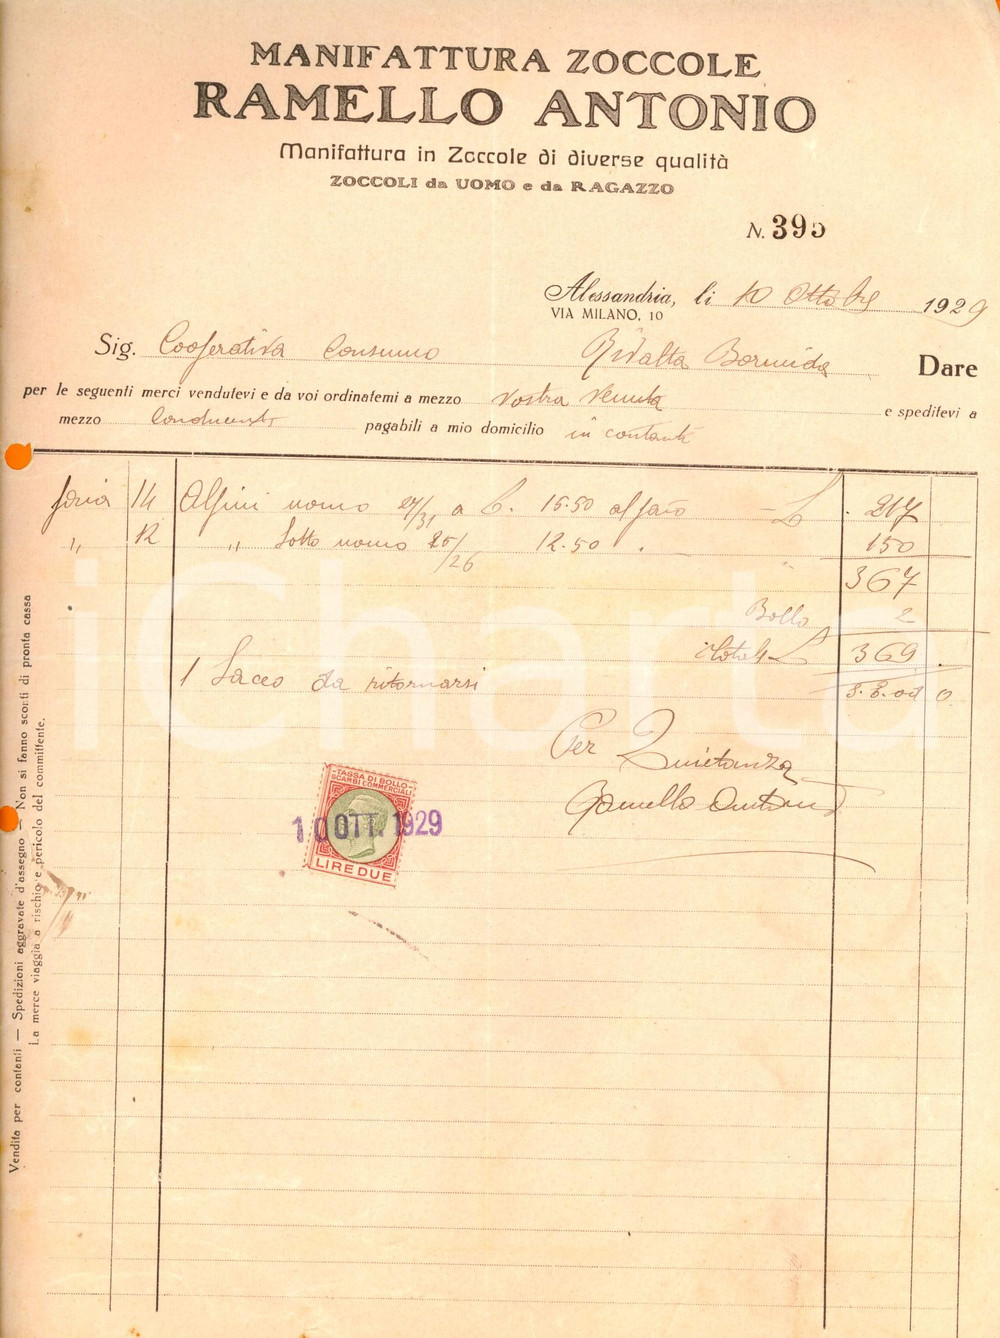 MANIFATTURA ZOCCOLE
RAMELLO ANTONIO
Manifattura in Zoccole di diverse qualità
ZOCCOLI da UOMO e da RAGAZZO
N. 395
Alessandria, li 10 Ottobre 1929
VIA MILANO, 10
Sig. Cooperativa Consumo Rivalta Bormida Dare
per le seguenti merci vendutevi e da voi ordinatemi a mezzo Vostra venuta e speditevi a
mezzo Conducente pagabili a mio domicilio in contanti
paia 14 Alpini uomo 27/31 a L. 15.50 al paio L 217
" 12 " Sotto uomo 25/26 12.50 " 150
367
Bollo 2
Totale L 369
1 Sacco da ritornarsi
Per Quietanza
Ramello Antonio
TASSA DI BOLLO
SCAMBI COMMERCIALI
LIRE DUE
10 OTT. 1929
Vendita per contanti — Spedizioni aggravate d'assegno — Non si fanno sconti di pronta cassa
La merce viaggia a rischio e pericolo del committente.
iCharta